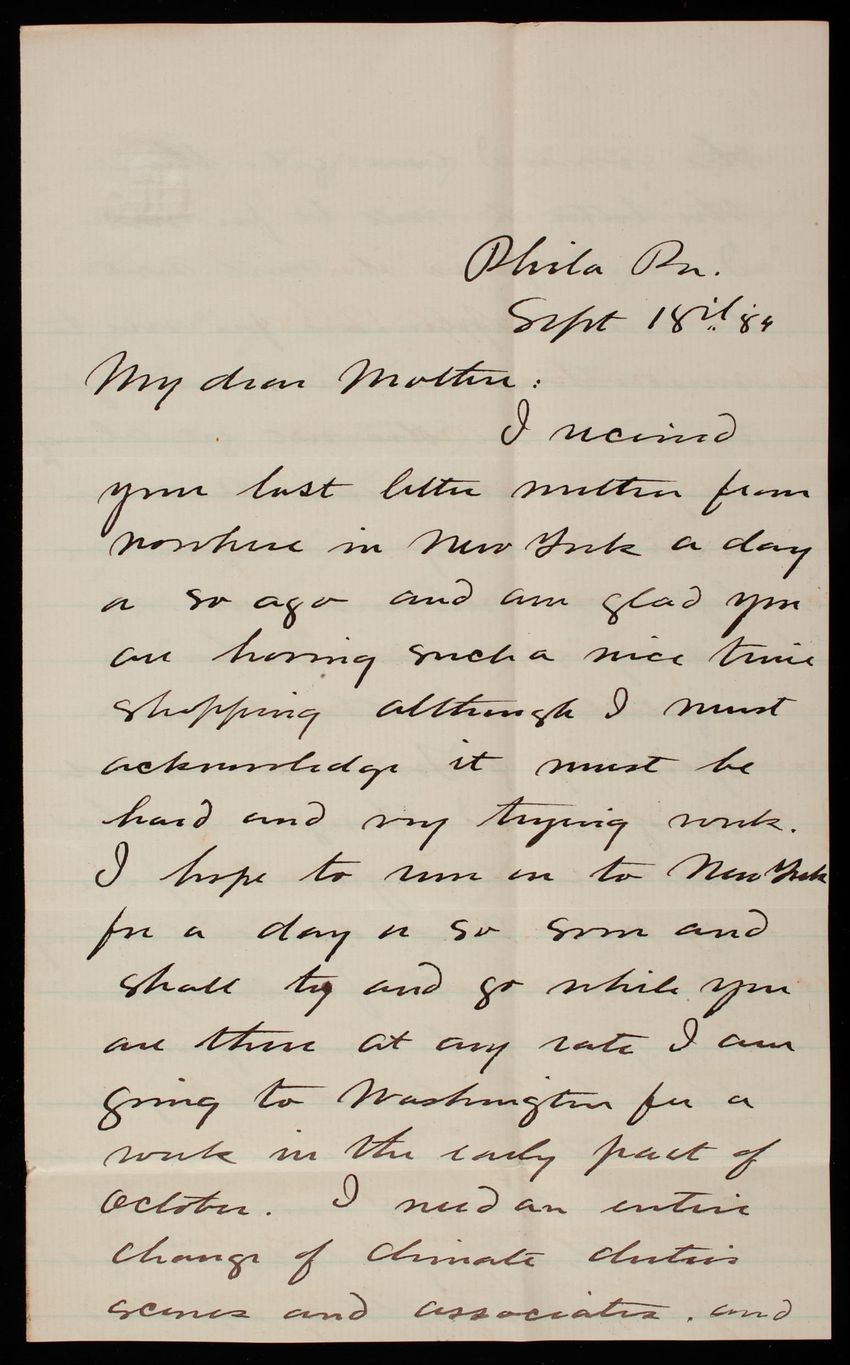 Phila Pa.
Sept 18th '84
My dear Mother:
I received
your last letter written from
nowhere in New York a day
or so ago and am glad you
are having such a nice time
shopping although I must
acknowledge it must be
hard and very trying work.
I hope to run on to New York
for a day or so soon and
shall try and go while you
are there at any rate I am
going to Washington for a
week in the early part of
October. I need an entire
change of climate duties
scenes and associates. and